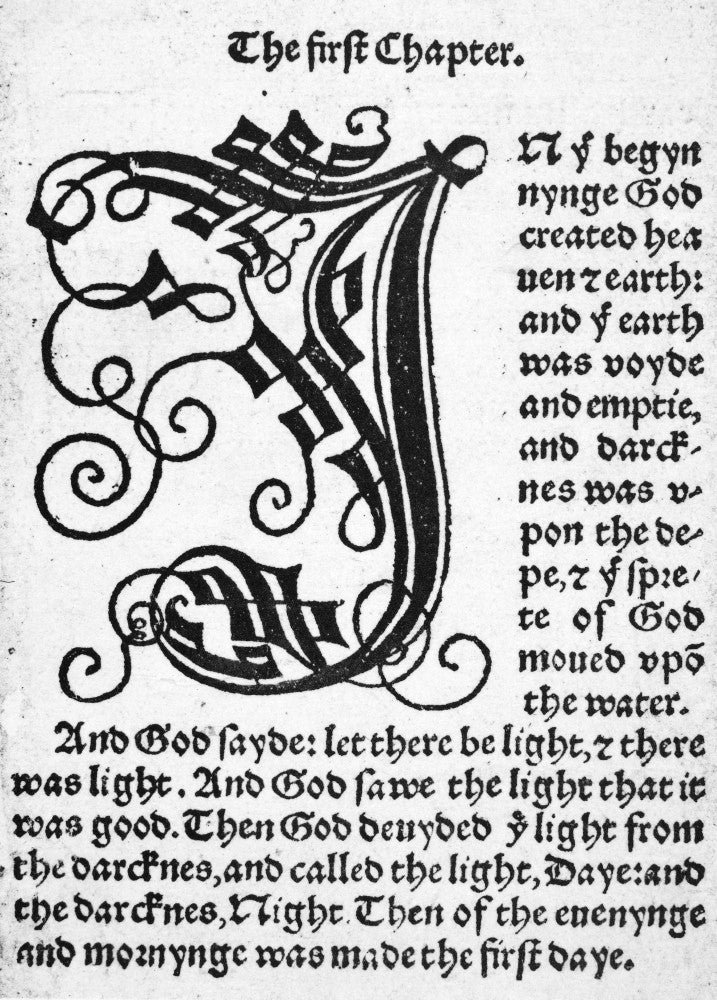 The first Chapter.
IN yͤ begyn
nynge God
created hea
uen ⁊ earth:
and yͤ earth
was voyde
and emptie,
and darck⸗
nes was v⸗
pon the de⸗
pe, ⁊ yͤ spre⸗
te of God
moued vpõ
the water.
And God sayde: let there be light, ⁊ there
was light. And God sawe the light that it
was good. Then God deuyded yͤ light from
the darcknes, and called the light, Daye: and
the darcknes, Night. Then of the euenynge
and mornynge was made the first daye.